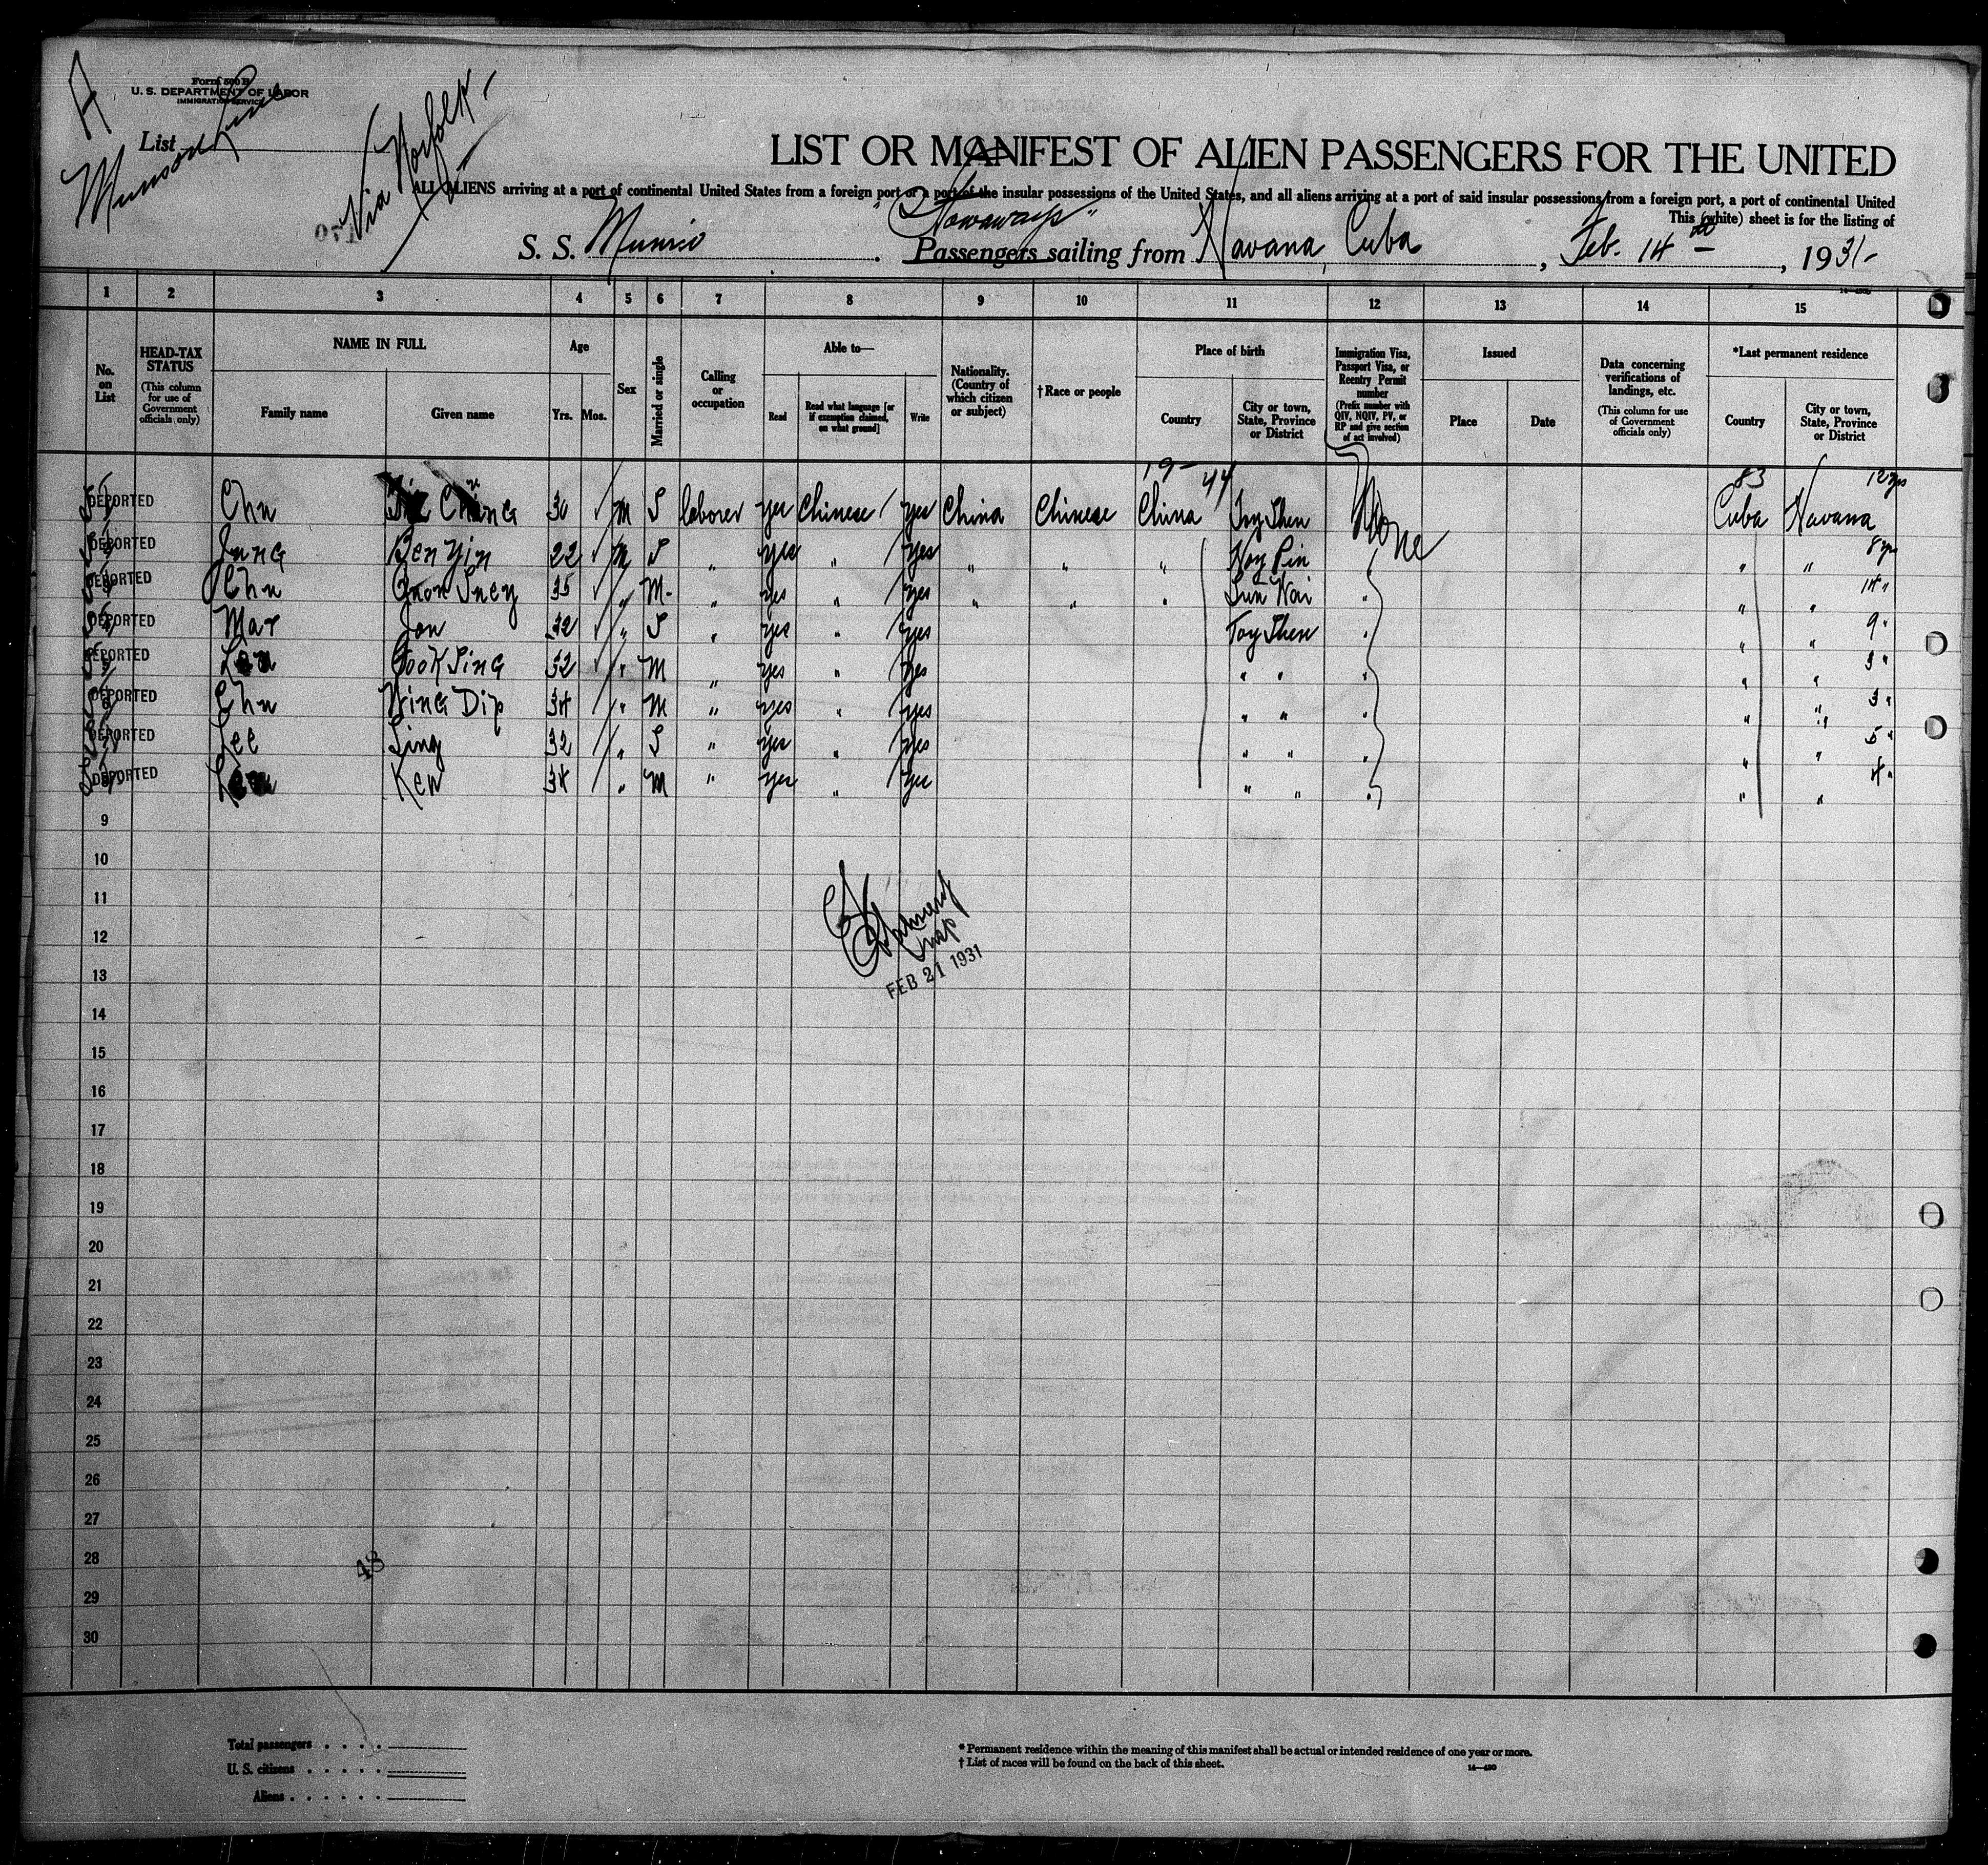 Form 500 B
U. S. DEPARTMENT OF LABOR
IMMIGRATION SERVICE
List
Munson Line
Via Norfolk
LIST OR MANIFEST OF ALIEN PASSENGERS FOR THE UNITED
ALL ALIENS arriving at a port of continental United States from a foreign port or a port of the insular possessions of the United States, and all aliens arriving at a port of said insular possessions from a foreign port, a port of continental United
This (white) sheet is for the listing of
"Stowaways"
S. S. Munrio . Passengers sailing from Havana, Cuba , Feb. 14 , 1931
1 2 3 4 5 6 7 8 9 10 11 12 13 14 15
No. on List
HEAD-TAX STATUS (This column for use of Government officials only)
NAME IN FULL Family name Given name
Age Yrs. Mos.
Sex
Married or single
Calling or occupation
Able to— Read Read what language [or if exemption claimed, on what ground] Write
Nationality. (Country of which citizen or subject)
†Race or people
Place of birth Country City or town, State, Province or District
Immigration Visa, Passport Visa, or Reentry Permit number (Prefix number with QIV, NQIV, PV, or RP and give section of act involved)
Issued Place Date
Data concerning verifications of landings, etc. (This column for use of Government officials only)
*Last permanent residence Country City or town, State, Province or District
19 44 83 12 yrs
DEPORTED Chu 30 M S laborer yes Chinese yes China Chinese China Toy Shen None Cuba Havana
DEPORTED Jung Ben Yin 22 M S " yes " yes " " " Hoy Pin " " 8 yrs
DEPORTED Chu Quon Suey 35 " M. " yes " yes " " " Sun Woi " " " 14 "
DEPORTED Mar Jon 32 " S " yes " yes Toy Shen " " " 9 "
DEPORTED Gook Sing 52 " M " yes " yes " " " " " 3 "
DEPORTED Chu Wing Dip 34 " M " yes " yes " " " " " 3 "
DEPORTED Lee Sing 32 " S " yes " yes " " " " " 5 "
DEPORTED Ken 34 " M " yes " yes " " " " " 4 "
9
10
11
12
13
FEB 21 1931
14
15
16
17
18
19
20
21
22
23
24
25
26
27
28
48
29
30
Total passengers . . . .
U. S. citizens . . . . .
Aliens . . . . . .
* Permanent residence within the meaning of this manifest shall be actual or intended residence of one year or more.
† List of races will be found on the back of this sheet.
14—430